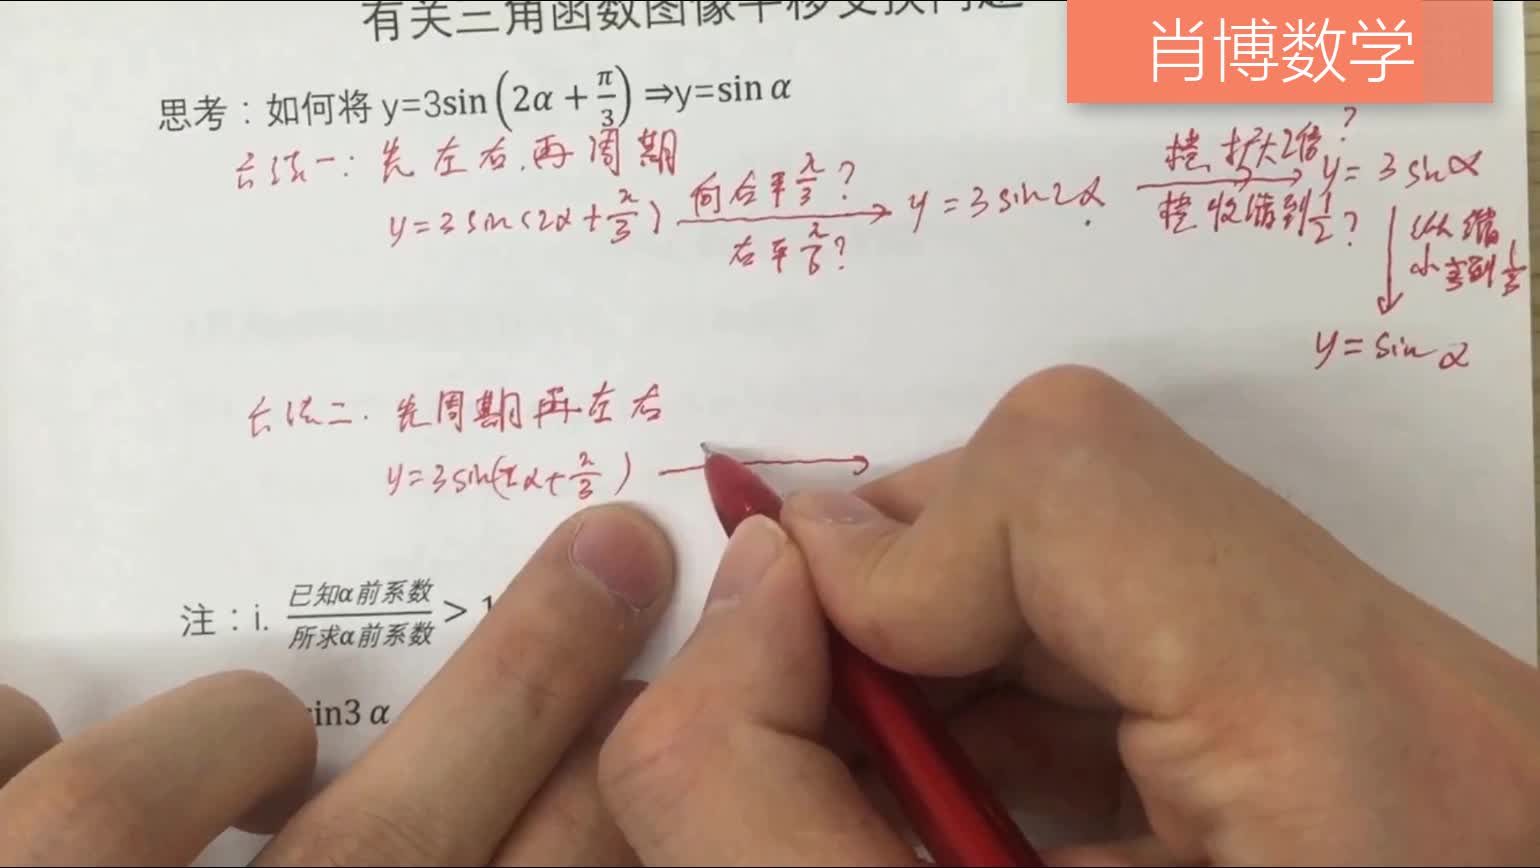 有关三角函数图像平移变换问题
肖博数学
思考：如何将 y=3sin(2α+π/3)⇒y=sin α
方法一：先左右,再周期
y=3sin(2α+π/3) 向右平π/3? 右平π/6? y=3sin2α 横扩大2倍? 横收缩到1/2? y=3sinα
纵缩
小到1/3
y=sinα
方法二.先周期再左右
y=3sin(2α+π/3)
注：i. 已知α前系数/所求α前系数>1
sin3 α